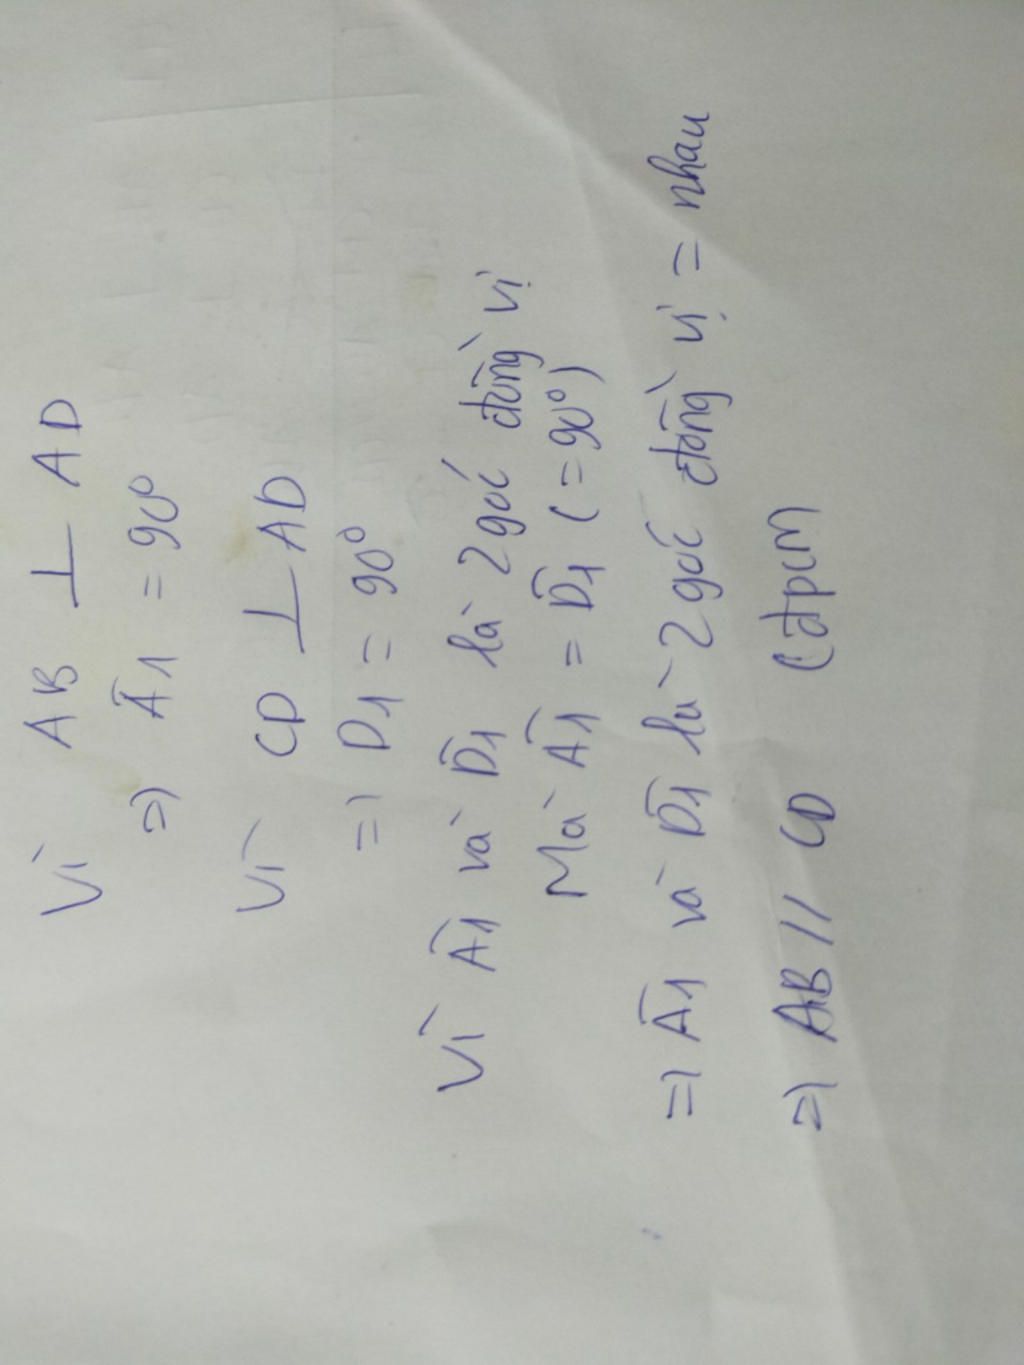 Vì AB ⊥ AD
=> Â1 = 90°
Vì CD ⊥ AD
=> D1 = 90°
Vì Â1 và D̂1 là 2 góc đồng vị
Mà Â1 = D̂1 (= 90°)
=> Â1 và D̂1 là 2 góc đồng vị = nhau
=> AB // CD (đpcm)